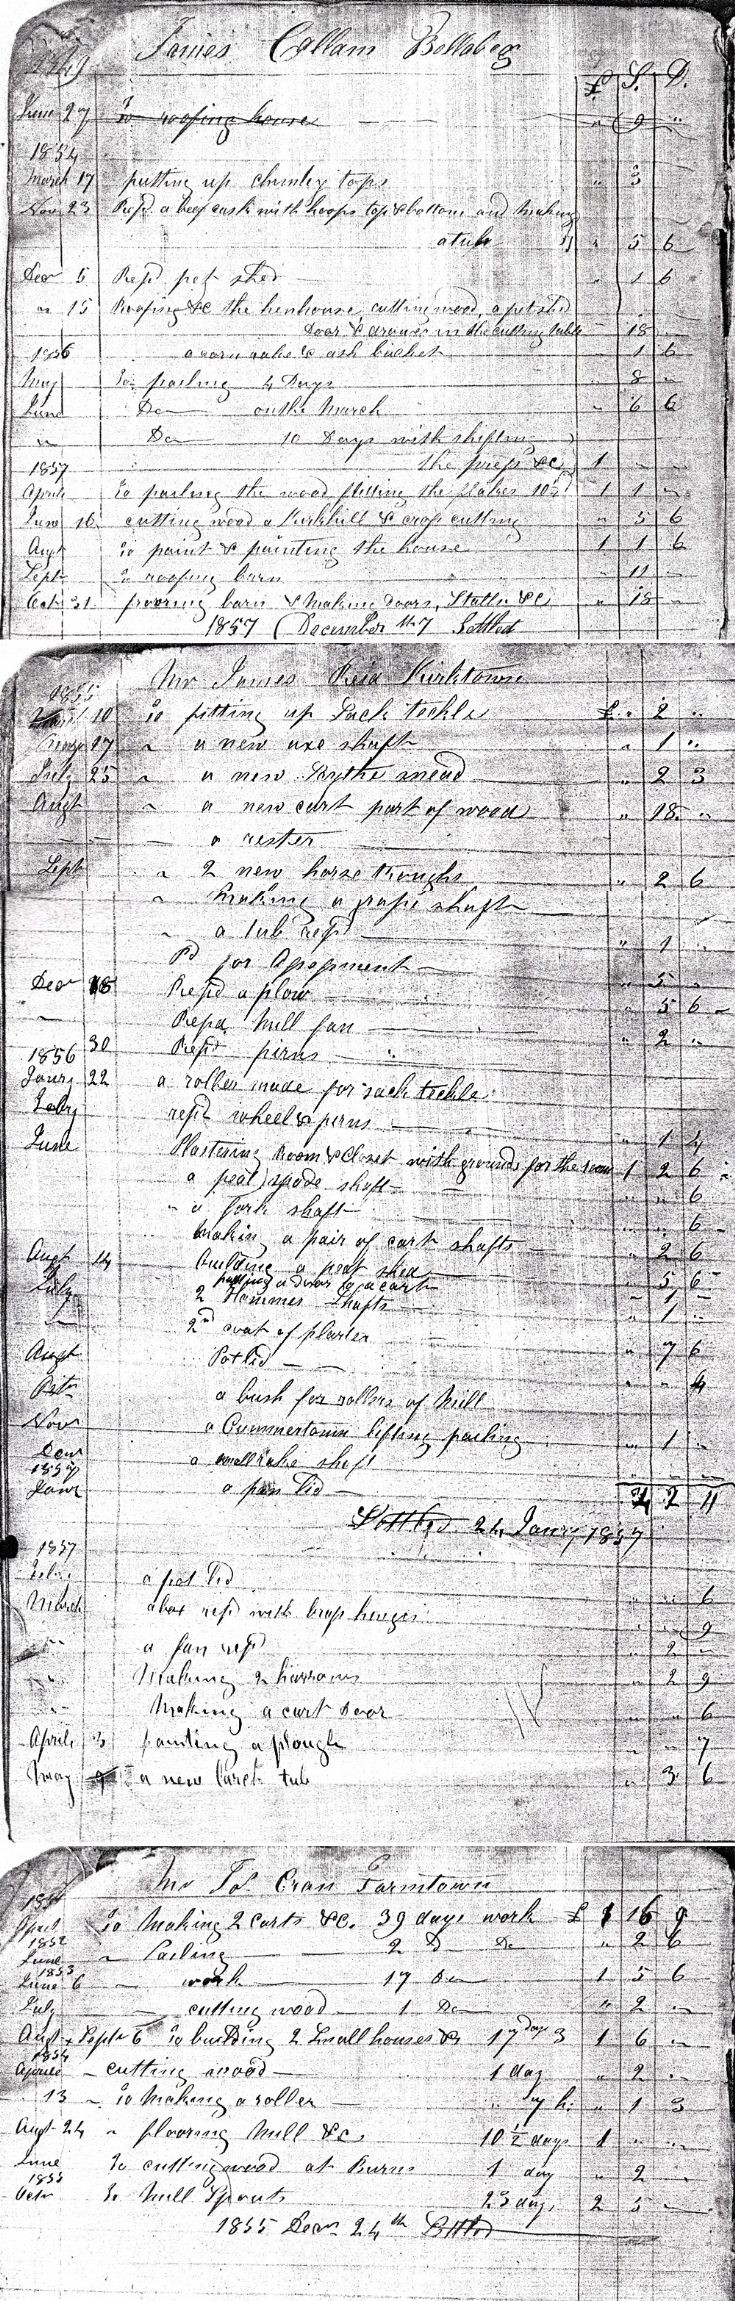 1849 James Collam Bellabeg
£. S. D.
June 27 To roofing house " 9 "
1854
March 17 putting up chimley tops " 3
Nov 23 Repd. a beef cask with hoops top & bottom and making
a tub " 5 6
Decr 5 Repd peat shed " 1 6
" 15 Roofing &c the henhouse, cutting wood, a peat shed
Door & drawer in the cutting table 18 "
1856 a corn rake & ash bucket 1 6
May To pailing 4 Days " 8 "
June Do on the March " 6 6
" Do 10 Days with shifting
1857 the &c 1 " "
Aprile To pailing the wood flitting the flakes 10½ 1 1 "
June 16 cutting wood a Kirkhill & crop cutting " 5 6
Augt To paint & painting the house 1 1 6
Sept To roofing barn " 11 "
Octr 31 flooring barn & making Doors, Stalls &c " 18 "
1857 December 7 Settled
1855 Mr James Reid Kirktown
April 10 To fitting up Sack teckle £ " 2 "
May 27 " a new axe shaft " 1 "
July 25 " a new Sythe snead " 2 3
Augt " a new cart part of wood " 18 "
a rester
Sept " 2 new horse troughs " 2 6
" making a grape shaft
" a tub repd " 1 "
Pd for " 5 "
Decr 18 Repd a plow 5 6
" Repd Mill fan " 2 "
30 Repd pirns "
1856
Janry 22 a roller made for sack teckle
Febry repd wheel & pirns " 1 4
June Plastering Room & Closet with grounds for the room 1 2 6
a peat spade shaft " " 6
" a fork shaft " " 6
making a pair of cart shafts " 2 6
Augt 14 building a peat shed " 5 6
putting a door to a cart " 1 "
July 2 Hammer Shafts " 1 "
" 2nd coat of plaster " 7 6
Augt Pot lid " " 4
Octr a bush for rollers of Mill
Novr a Cummertown lifting pailing " 1 "
Decr a rake shaft " " "
1857
Janr a pan lid 2 11
Settled 24 Janry 1857
1857
Febr. a pot lid " " 6
March a box repd with brass hinges " " 9
" a fan repd " 2 "
" Making 2 harrows " 2 9
" Making a cart Door " " 6
Aprile 3 painting a plough " " 7
May 9 a new larch tub " 3 6
Mr Cran Farmtown
April To Making 2 carts &c. 39 days work £ 16 9
1852
June " Pailing 2 D Do " 2 6
1853
June 6 " work 17 Do 1 5 6
July cutting wood 1 Do " 2 "
Augt & Septr 6 To building 2 small houses &c 17 days 3 1 6 "
1854
Aprile " cutting wood 1 day " 2 "
13 " To Making a roller " 7 h: " 1 3
Augt 24 " flooring Mill &c 10½ days 1 " "
June To cutting wood at Burns 1 day " 2 "
1855
Octr To Mill Spouts 23 days 2 5 "
1855 Decr 24th Settled